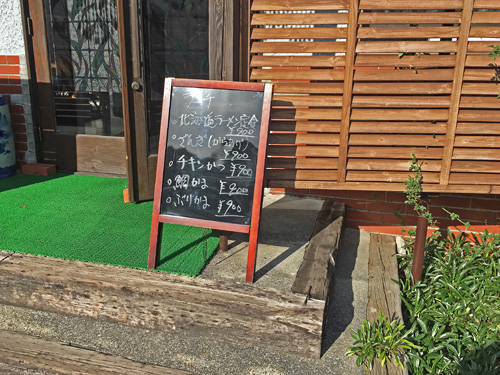 ランチ
。北海道ラーメン定食
¥900
。ざんぎ(からあげ)
¥900
。チキンかつ ¥900
。鯛かま ¥900
。ぶりかま ¥900